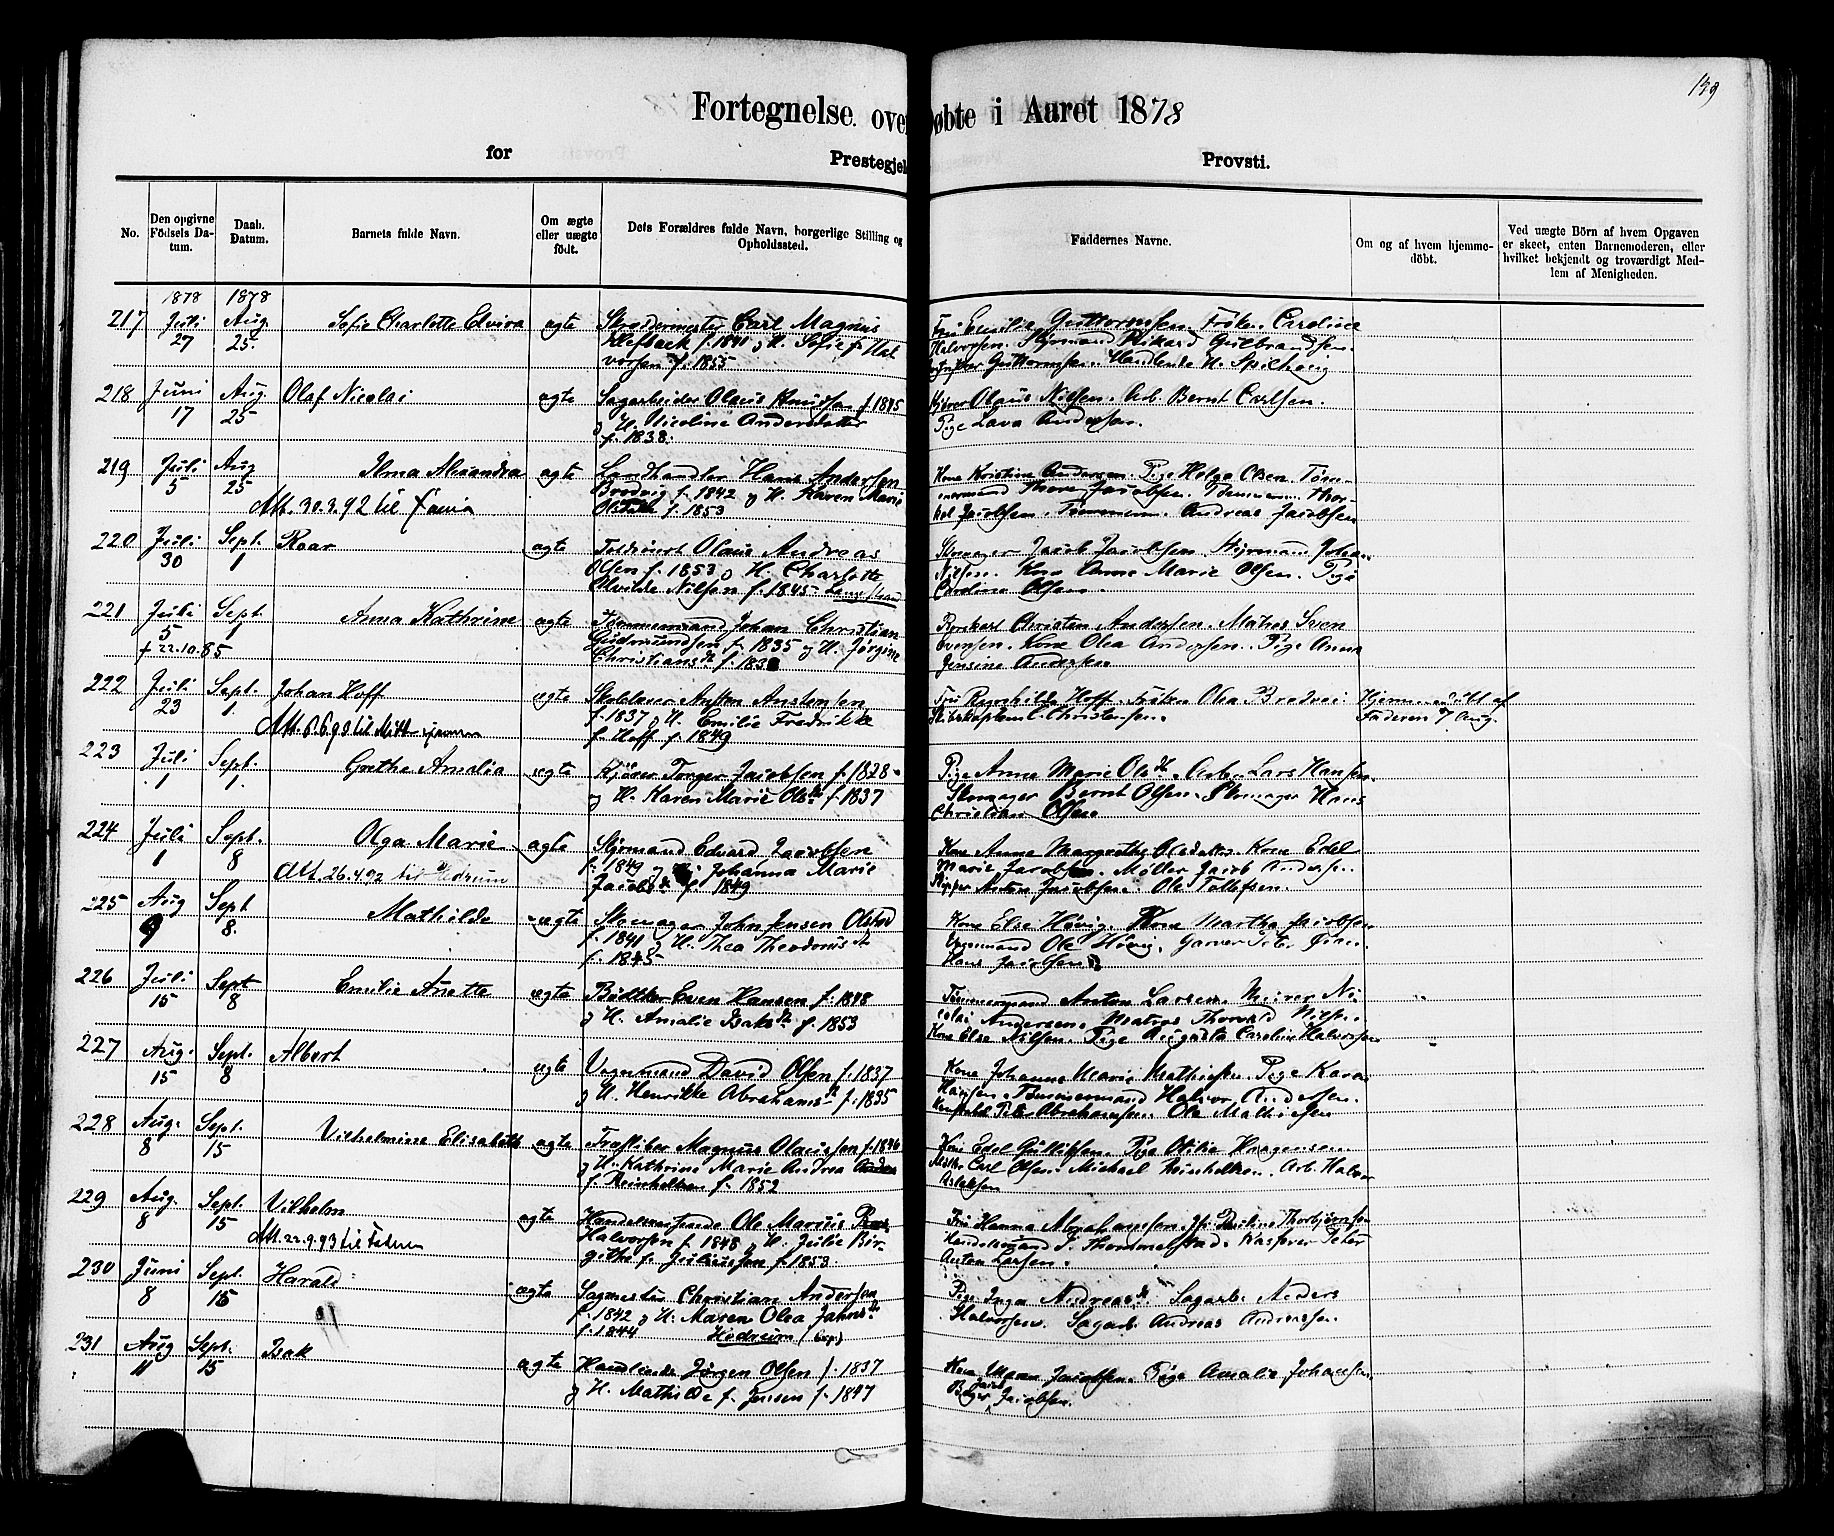 139
Fortegnelse over Døbte i Aaret 1878
for Prestegjel Provsti.
No.
Den opgivne Födsels Datum.
Daab. Datum.
Barnets fulde Navn.
Om ægte eller uægte födt.
Dets Forældres fulde Navn, borgerlige Stilling og Opholdssted.
Faddernes Navne.
Om og af hvem hjemmedöbt.
Ved uægte Börn af hvem Opgaven er skeet, enten Barnemoderen, eller hvilket bekjendt og troværdigt Medlem af Menigheden.
1878 1878
217 Juli 27 Aug. 25. Sofie Charlotte Elvira ægte Skreddermester Carl Magnus
f. 1841 og H. Sofie f. Hal
vorsen f. 1855
Fru Emilie Guttormsen. Frøken Caroline
Halvorsen. Styrmand Rikard Gulbrandsen.
Guttormsen. Handlende H.
218 Juni 17 Aug. 25 Olaf Nicolai ægte Sagarbeider Olaus Knudsen f. 1845
og H. Nicoline Andersdatter
f. 1838.
Kjører Olaus Nilsen. Arb. Bernt Carlsen.
Pige Lava Andersen.
219 Juli 5 Aug 25 Ilma Alexandra ægte Landhandler Hans Andersen
Bredvig f. 1842 og H. Karen Marie
f. 1853
Att. 30.3.92 til
Kone Kristine Andersen. Pige Helga Olsen Töm-
mermand Thore Jacobsen. Tömmerm. Thor-
kel Jacobsen. Tömmerm. Andreas Jacobsen
220 Juli 30 Sept. 1 Roar ægte Olaus Andreas
Olsen f. 1853 og H. Charlotte
Olvilde Nilsen f. 1845
Skomager Jacob Jacobsen. Styrmand Johan
Nilsen. Kone Anne Marie Olsen. Pige
Caroline Olsen.
221 Juli 5 Sept 1 Anna Kathrine ægte Tömmermand Johan Christian
Gudmundsen f. 1835 og H. Jørgine
Christiansdt
† 22.10.85
Christen Andersen. Matros Sven
Evensen. Kone Olea Andersen. Pige Anna
Jensine Andersen
222 Juli 23 Sept. 1. Johan Hoff ægte Skolelærer Anstensen
f. 1837 og H. Emilie Fredrikke
f. Hoff f. 1849
Fru Ragnhilde Hoff. Frøken Olea Bredvei
Skibskaptein C. Christensen.
Hjemmedöbt af
Faderen 7 Aug.
223 Juli 1 Sept. 1. Grethe Amalia ægte Kjører Torger Jacobsen f. 1828
og H. Karen Marie Olsdt f. 1837
Pige Anne Marie Olsdt. Arb. Lars Hansen.
Skomager Bernt Olsen. Skomager Hans
Christian Olsen
224 Juli 1 Sept. 8 Olga Marie ægte Styrmand Edvard Jacobsen
f. 1849 og Johanna Marie
Jacobsdt f. 1849
Att. 26.4.92 til Hedrum
Kone Anne Margrethe Olsdatter. Kone Edel
Marie Jacobsen. Møller Jacob Andersen.
Skipper Anton Jacobsen. Ole Tollefsen.
225 Aug 9 Sept 8. Mathilde ægte Skomager John Jensen Olstad
f. 1841 og H. Thea
f. 1845
Kone Else Høvig. Kone Martha Jacobsen
Vognmand Ole Høvig. Garver
Hans Jacobsen
226 Juli 15 Sept 8 Emilie Anette ægte Bødkker Even Hansen f. 1848
og H. Amalie Isaksdt. f. 1853
Tömmermand Anton Larsen. Murer Ni
colai Andersen. Matros Thorvald Nilsen.
Kone Else Nilsen. Pige Augusta Caroline Halvorsen
227 Aug. 15 Sept. 8 Albert ægte Vognmand David Olsen f. 1837
og H. Henrikke Abrahamsdt f. 1835
Kone Johanne Marie Mathiesen. Pige Karen
Hansen. Tömmermand Halvor Andersen.
Peter Abrahamsen. Ole Mathiesen
228 Aug. 8 Sept. 15 Vilhelmine Elisabeth ægte Magnus Olaussen f. 1846
og H. Kathrine Marie Andrea
f. Reinholtsen f. 1852
Kone Edel Gulliksen. Pige Otilie Haagensen
Carl Olsen. Michael Reinholtsen. Arb. Halvor
Aslaksen
229 Aug. 8 Sept. 15 Vilhelm ægte Handelsreisende Ole Marius
Halvorsen f. 1848 og H. Julie Bir-
githe f. Juliussen f. 1853
Att. 22.9.93 til Faderen
Fru Hanna Abrahamsen. Thorbjørnsen
Handelsmand J. Thommelstad. Kasserer Peter
Anton Larsen.
230 Juni 8 Sept. 15 Harald ægte Sagmester Christian Andersen
f. 1842 og H. Maren Olea Jahnsdt
f. 1844 Hedrum
Pige Inga Andreasdt. Sagarb. Anders
Halvorsen. Sagarb. Andreas Andreassen.
231 Aug 11 Sept. 15 Isak ægte Handlende Jørgen Olsen f. 1837
og H. Mathilde f. Jensen f. 1847
Kone Maren Jacobsen. Pige Amalie Johansen.
Jacob Jacobsen.